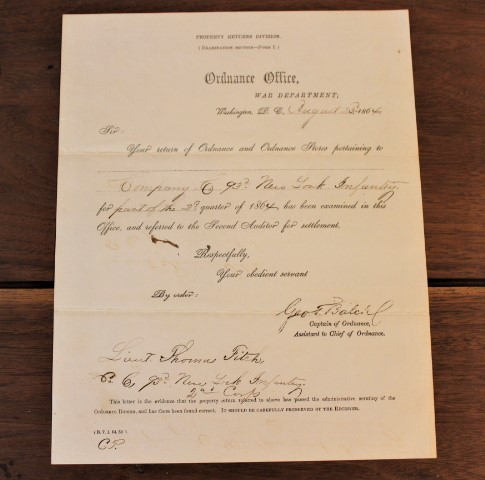 PROPERTY RETURNS DIVISION.
(EXAMINATION SECTION—FORM 1.)
Ordnance Office,
WAR DEPARTMENT,
Washington, D. C., August 1864
Sir:
Your return of Ordnance and Ordnance Stores pertaining to
Company C 93d New York Infantry
for part of the 2d quarter of 1864 has been examined in this
Office, and referred to the Second Auditor for settlement.
Respectfully,
Your obedient servant
By order:
Geo. T. Balch
Captain of Ordnance,
Assistant to Chief of Ordnance.
Lieut Thomas Fitch
Co. C, 93d New York Infantry
2nd Corps
This letter is the evidence that the property return referred to above has passed the administrative scrutiny of the
Ordnance Bureau, and has there been found correct. IT SHOULD BE CAREFULLY PRESERVED BY THE RECEIVER.